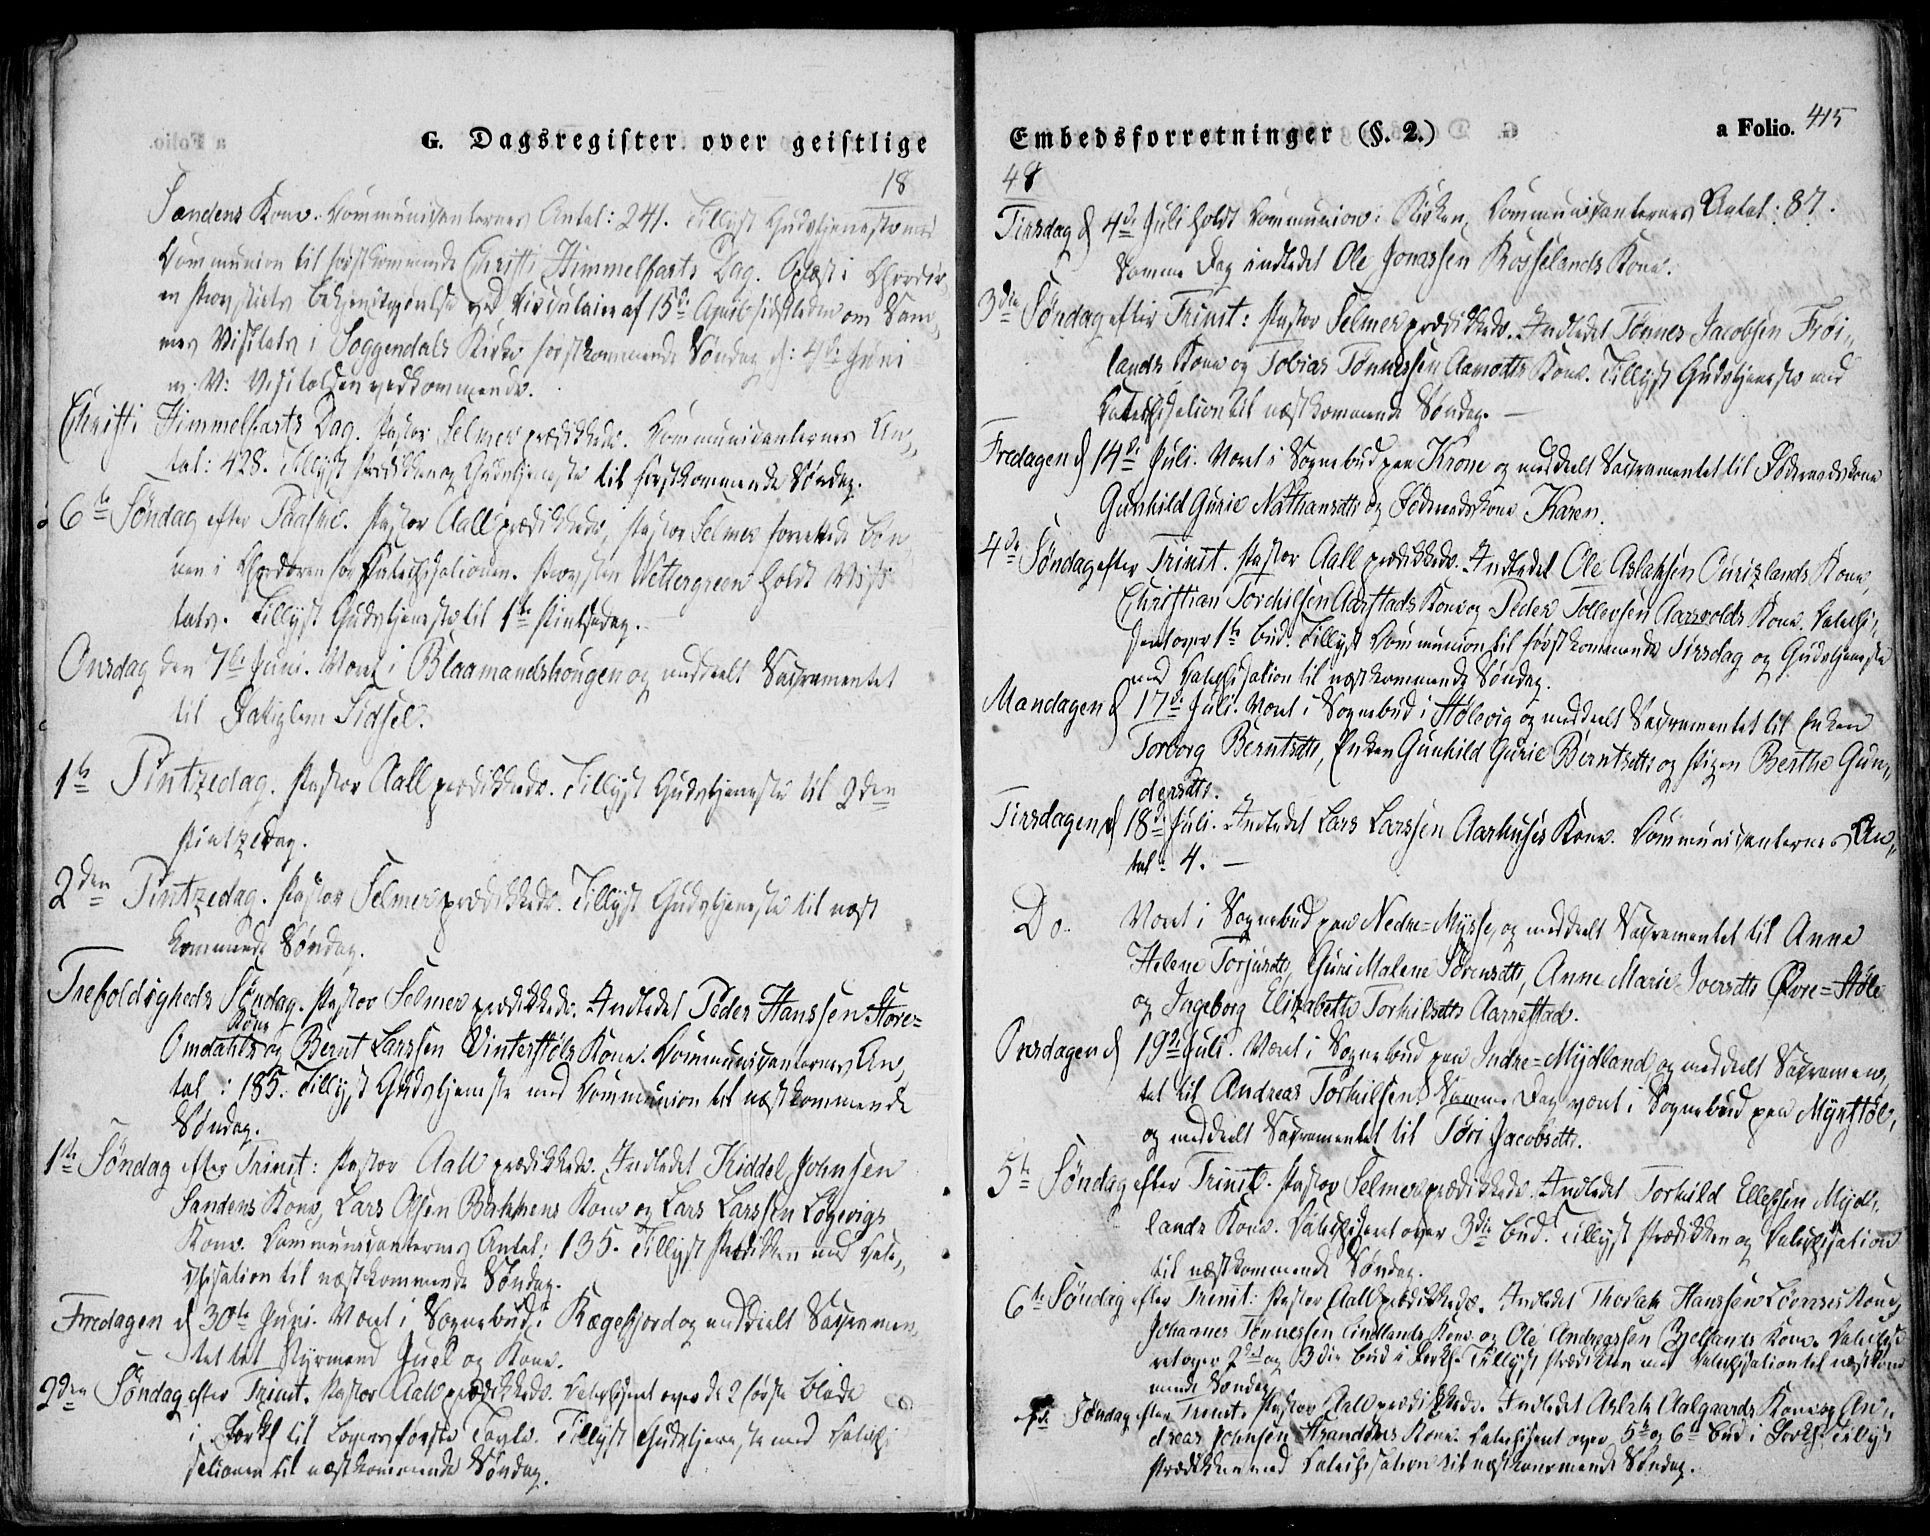 G. Dagsregister over geistlige
18
Sandens Kone. Communicanternes Antal: 241. Tillyst Gudstjeneste med
Communion til førstkommende Christi Himmelfarts Dag. Oplæst i Chordøren
Provstiets bekjendtgjørelse ved Circulaire af 15de April sidstleden om Sam¬
mes Visitats i Soggendals Kirke førstkommende Søndag d: 4de Juni
m. V: Visitatsen vedkommende.
Christi Himmelfarts Dag. Pastor Selmer prædikkede. Communicanternes An¬
tal: 428. Tillyst Prædikken og Gudstjeneste til førstkommende Søndag.
6te Søndag efter Paaske. Pastor Aall prædikkede, Pastor Selmer forrettede Bøn¬
nen i Chordøren før Catechisationen. Provsten Wettergreen holdt Visi¬
tats. Tillyst Gudstjeneste til 1ste Pintsedag.
Onsdag den 7de Juni. Været i Blaamandshougen og meddeelt Sacramentet
til Sidsel.
1ste Pintzedag. Pastor Aall prædikkede. Tillyst Gudstjeneste til 2den
Pintzedag.
2den Pintzedag. Pastor Selmer prædikkede. Tillyst Gudstjeneste til næst
kommende Søndag.
Trefoldigheds Søndag. Pastor Selmer prædikkede. Indledet Peder Hanssen Store=
Omdahls Kone og Bernt Larssen Vinterstøls Kone. Communicanternes An¬
tal: 185. Tillyst Gudstjeneste med Communion til næstkommende
Søndag.
1ste Søndag efter Trinit: Pastor Aall prædikkede. Indledet Kiddel Johnsen
Sandens Kone, Lars Olsen Bakkens Kone og Lars Larssen Løgevigs
Kone. Communicanternes Antal: 135. Tillyst Prædikken med Cate¬
chisation til næstkommende Søndag.
Fredagen d 30te Juni. Været i Sognebud i Rægefjord og meddeelt Sacramen¬
tet til Styrmand Juel og Kone.
2den Søndag efter Trinit. Pastor Aall prædikkede. Catechiseret over de 2 første blade
i Forkl til Lovens første Tavle. Tillyst Gudstjeneste med Catechi
sationen til næstkommende Søndag.
Embedsforretninger (§. 2.)
a Folio. 415
48
Tirsdag d 4de Juli holdt Communion i Kirken, Communicanternes Antal: 87.
Samme Dag indledet Ole Jonassen Rosselands Kone.
3die Søndag efter Trinit: Pastor Selmer prædikkede. Indledet Tønnes Jacobsen Frøi¬
lands Kone og Tobias Tønnessen Aamots Kone. Tillyst Gudstjeneste med
Catechisation til næstkommende Søndag. —
Fredagen d 14de Juli. Været i Sognebud paa Krone og meddeelt Sacramentet til Føderaadskone
Gunhild Gurie Nathansdtr og Føderaadskone Karen.
4de Søndag efter Trinit. Pastor Aall prædikkede. Indledet Ole Aslaksen Kone,
Christian Torchilsen Aarstads Kone og Peder Tollevsen Aarvolds Kone. Catechi¬
seret over 1ste bud. Tillyst Communion til førstkommende Tirsdag og Gudstjeneste
med Catechisation til næstkommende Søndag.
Mandagen d 17de Juli. Været i Sognebud i Hølevig og meddeelt Sacramentet til Enken
Torborg Berntsdtr, Enken Gunhild Gurie Berntsdtr og Pigen Berthe Gun¬
dersdtr.
Tirsdagen d 18de Juli. Indledet Lars Larssen Aarhuses Kone. Communicanternes An¬
tal: 4. —
Do. Været i Sognebud paa Nedre=Mysse, og meddeelt Sacramentet til Anne
Helene Torjusdtr, Guri Malene Sørensdtr, Anne Marie Iversdtr Øvre=Støle
og Ingeborg Elizabeth Torkilsdtr Aarrestad.
Onsdagen d 19de Juli. Været i Sognebud paa Indre=Mydland og meddeelt Sacramen¬
tet til Andreas Torkilsen. Samme Dag været i Sognebud paa Myrstøl,
og meddeelt Sacramentet til Tøri Jacobsdtr.
5te Søndag efter Trinit. Pastor Selmer prædikkede. Indledet Torkild Ellefsen Myd¬
lands Kone. Catechiseret over 3die bud. Tillyst Prædikken og Catechisation
til næstkommende Søndag.
6te Søndag efter Trinit: Pastor Aall prædikkede. Indledet Thorlak Hanssen Kone,
Johannes Tønnessen Lindlands Kone og Ole Andreassen Bjellands Kone. Catechise
ret over 2det og 3die bud i Forkl. Tillyst Prædikken med Catechisation til næstkom
mende Søndag.
7de Søndag efter Trinit. Pastor Aall prædikkede. Indledet Aslak Aalgaards Kone og An¬
dreas Johnsen Strandens Kone. Catechiseret over 5te og 6te bud i Forkl. Tillyst
Prædikken med Catechisation til næstkommende Søndag.